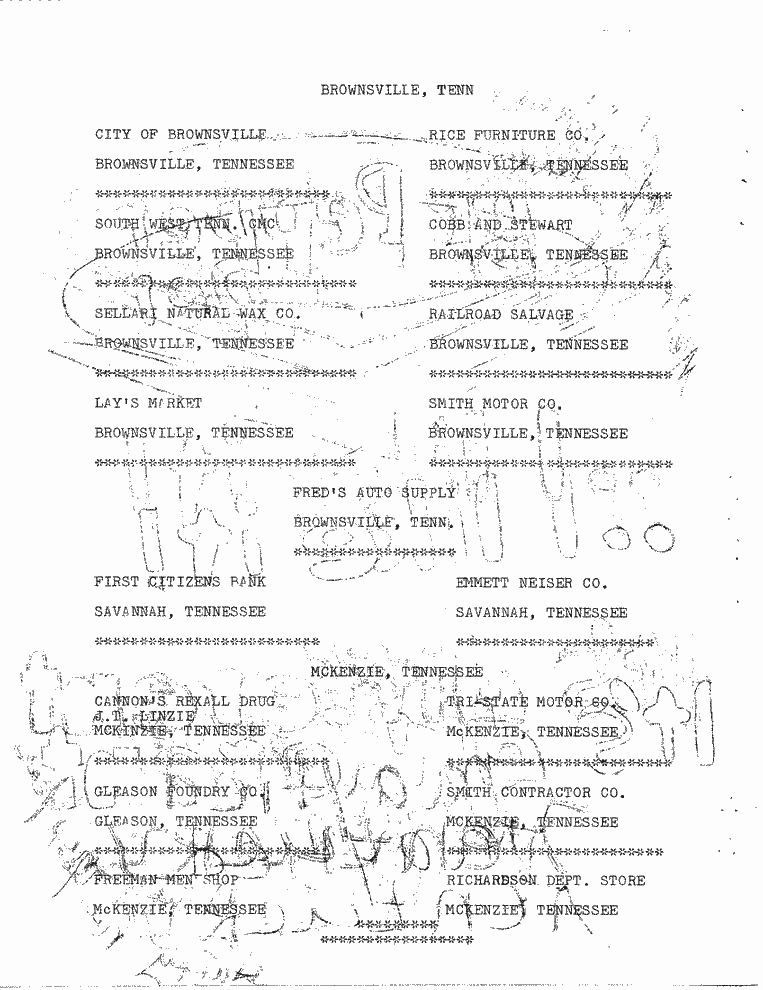 BROWNSVILLE, TENN
CITY OF BROWNSVILLE
BROWNSVILLE, TENNESSEE
**************************
RICE FURNITURE CO.
BROWNSVILLE, TENNESSEE
***************************
SOUTH WEST TENN. GMC
BROWNSVILLE, TENNESSEE
*****************************
COBB AND STEWART
BROWNSVILLE, TENNESSEE
***************************
SELLARI NATURAL WAX CO.
BROWNSVILLE, TENNESSEE
*****************************
RAILROAD SALVAGE
BROWNSVILLE, TENNESSEE
***************************
LAY'S MARKET
BROWNSVILLE, TENNESSEE
*****************************
SMITH MOTOR CO.
BROWNSVILLE, TENNESSEE
***************************
FRED'S AUTO SUPPLY
BROWNSVILLE, TENN.
******************
FIRST CITIZENS BANK
SAVANNAH, TENNESSEE
*************************
EMMETT NEISER CO.
SAVANNAH, TENNESSEE
**********************
MCKENZIE, TENNESSEE
CANNON'S REXALL DRUG
J.T. LINZIE
MCKINZIE, TENNESSEE
**************************
TRI-STATE MOTOR CO.
McKENZIE, TENNESSEE
**********************
GLEASON FOUNDRY CO.
GLEASON, TENNESSEE
**************************
SMITH CONTRACTOR CO.
MCKENZIE, TENNESSEE
************************
FREEMAN MEN SHOP
McKENZIE, TENNESSEE
RICHARDSON DEPT. STORE
MCKENZIE, TENNESSEE
*********
*****************